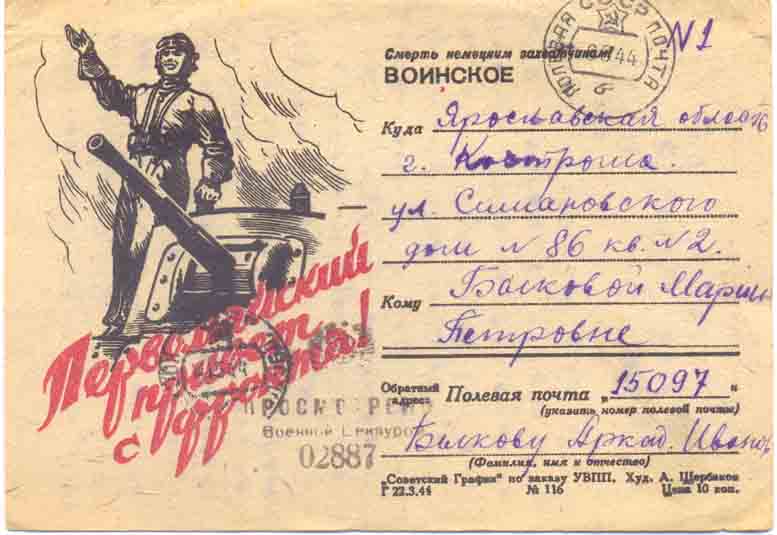 Первомайский
привет
с фронта!
ПОЛЕВАЯ ПОЧТА
СССР
44
б
N1
Смерть немецким захватчикам!
ВОИНСКОЕ
Куда Ярославская область
г. Кострома.
ул. Симановского
дом N 86 кв. N 2.
Кому Бычковой Марии
Петровне
Обратный адрес: Полевая почта „15097"
(указать номер полевой почты)
Бычкову Аркад. Иванов
(Фамилия, имя и отчество)
„Советский График" по заказу УВПП, Худ. А. Щербаков
Г 22.3.44 № 116 Цена 10 коп.
ПРОСМОТРЕНО
Военной Цензурой
02887